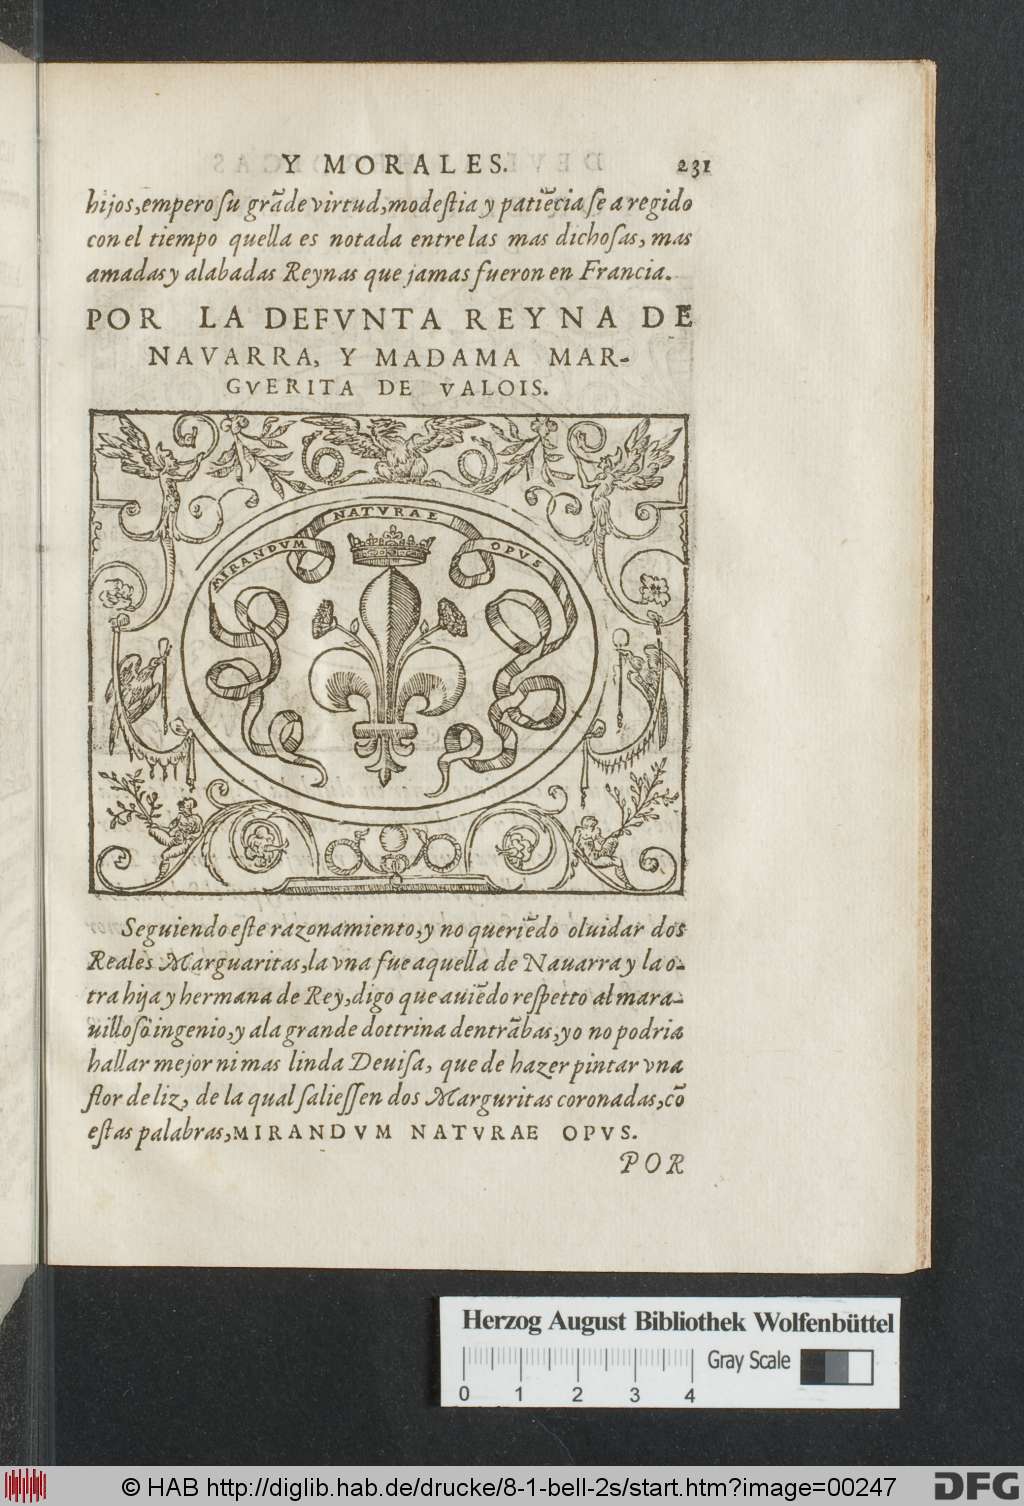 Y MORALES. 231
hijos, empero su grãde virtud, modestia y patiẽcia se a regido
con el tiempo quella es notada entre las mas dichosas, mas
amadas y alabadas Reynas que jamas fueron en Francia.
POR LA DEFVNTA REYNA DE
NAVARRA, Y MADAMA MAR-
GVERITA DE VALOIS.
MIRANDVM NATVRAE OPVS
Seguiendo este razonamiento, y no queriẽdo oluidar dos
Reales Marguaritas, la vna fue aquella de Nauarra y la o-
tra hija y hermana de Rey, digo que auiẽdo respetto al mara-
uilloso ingenio, y a la grande dottrina dentrãbas, yo no podria
hallar mejor ni mas linda Deuisa, que de hazer pintar vna
flor de liz, de la qual saliessen dos Marguritas coronadas, cõ
estas palabras, MIRANDVM NATVRAE OPVS.
POR
Herzog August Bibliothek Wolfenbüttel
Gray Scale
0 1 2 3 4
© HAB http://diglib.hab.de/drucke/8-1-bell-2s/start.htm?image=00247
DFG